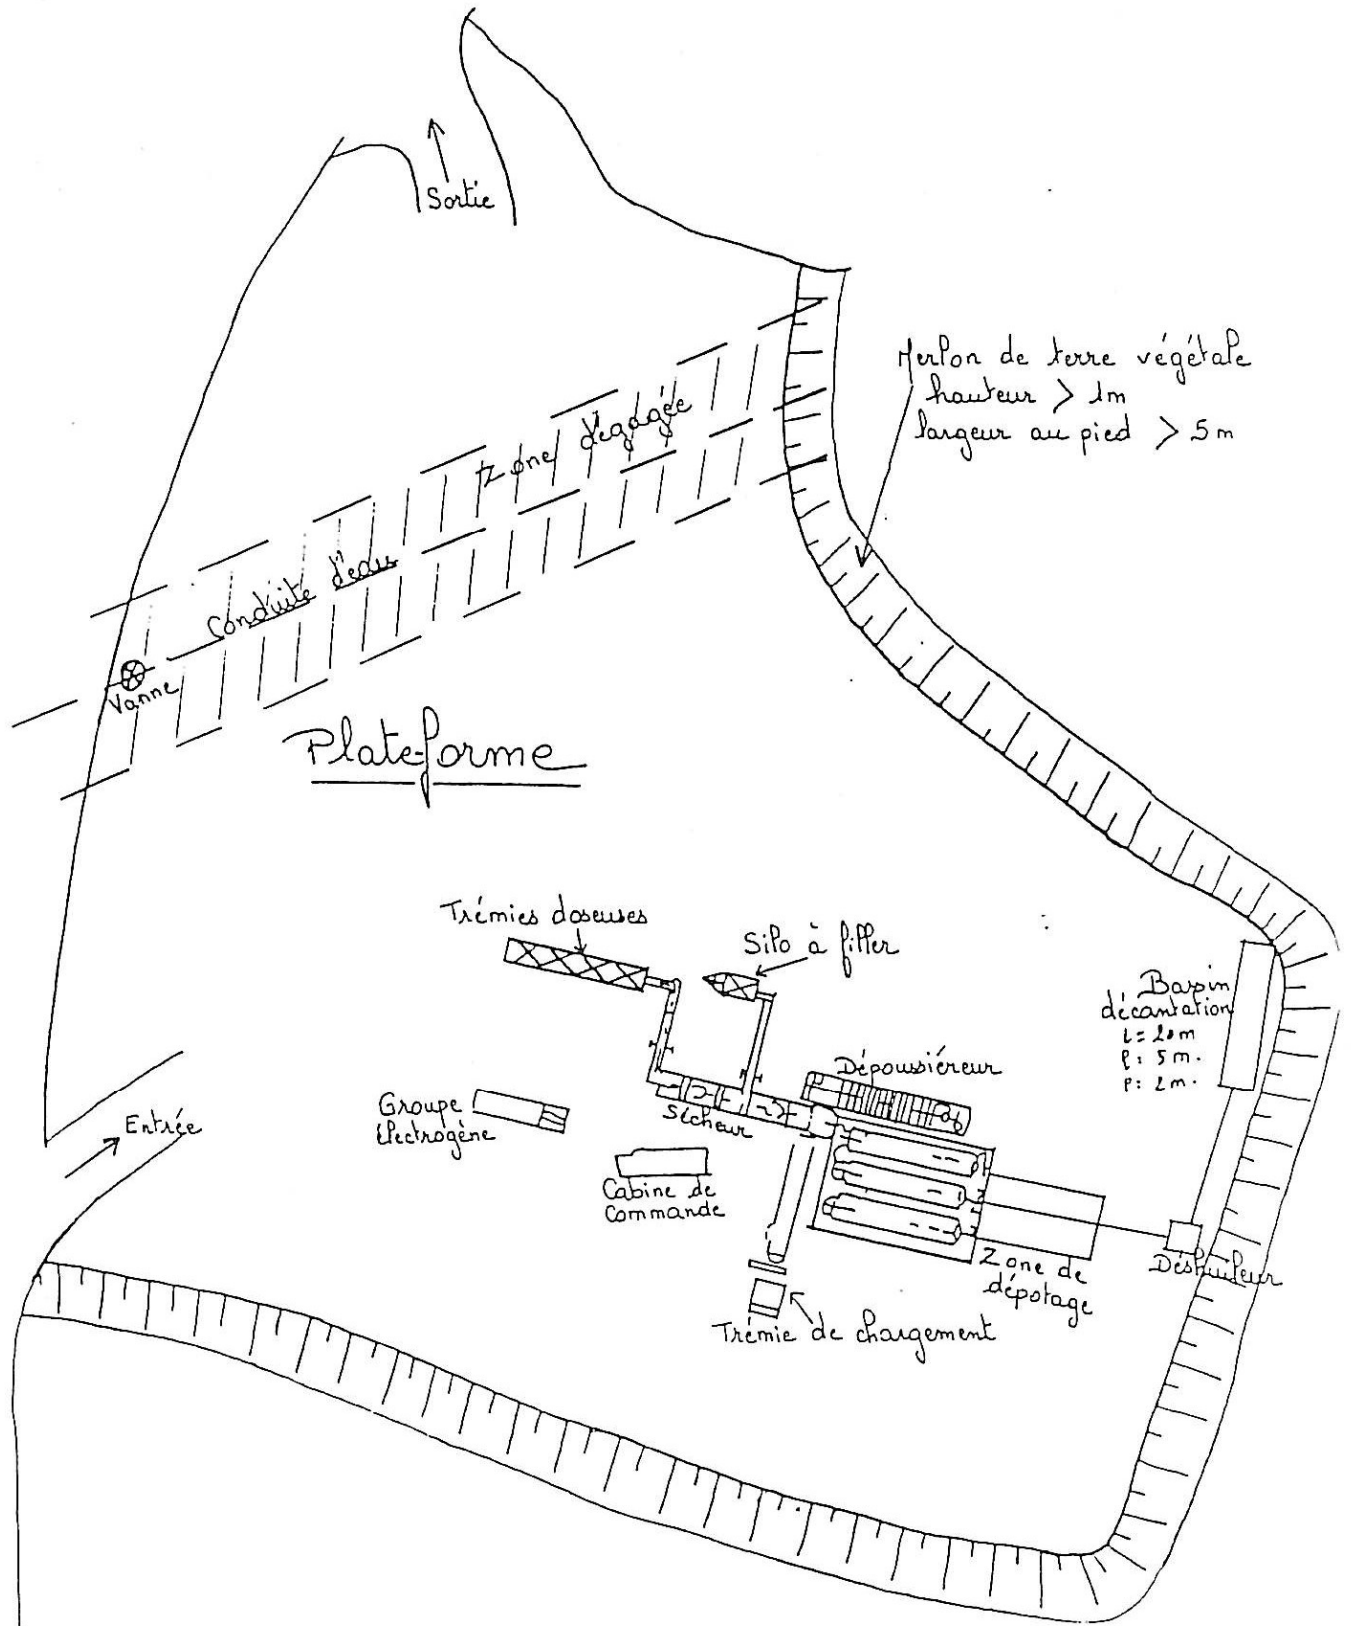 Sortie
Merlon de terre végétale
hauteur > 1m
largeur au pied > 5m
Zone dégagée
Conduite d'eau
Vanne
Plate-forme
Trémies doseuses
Silo à filler
Bassin
décantation
L= 20m
l: 5m.
P: 2m.
Dépoussiéreur
Groupe
électrogène
Sécheur
Entrée
Cabine de
Commande
Zone de
dépotage
Déshuileur
Trémie de chargement